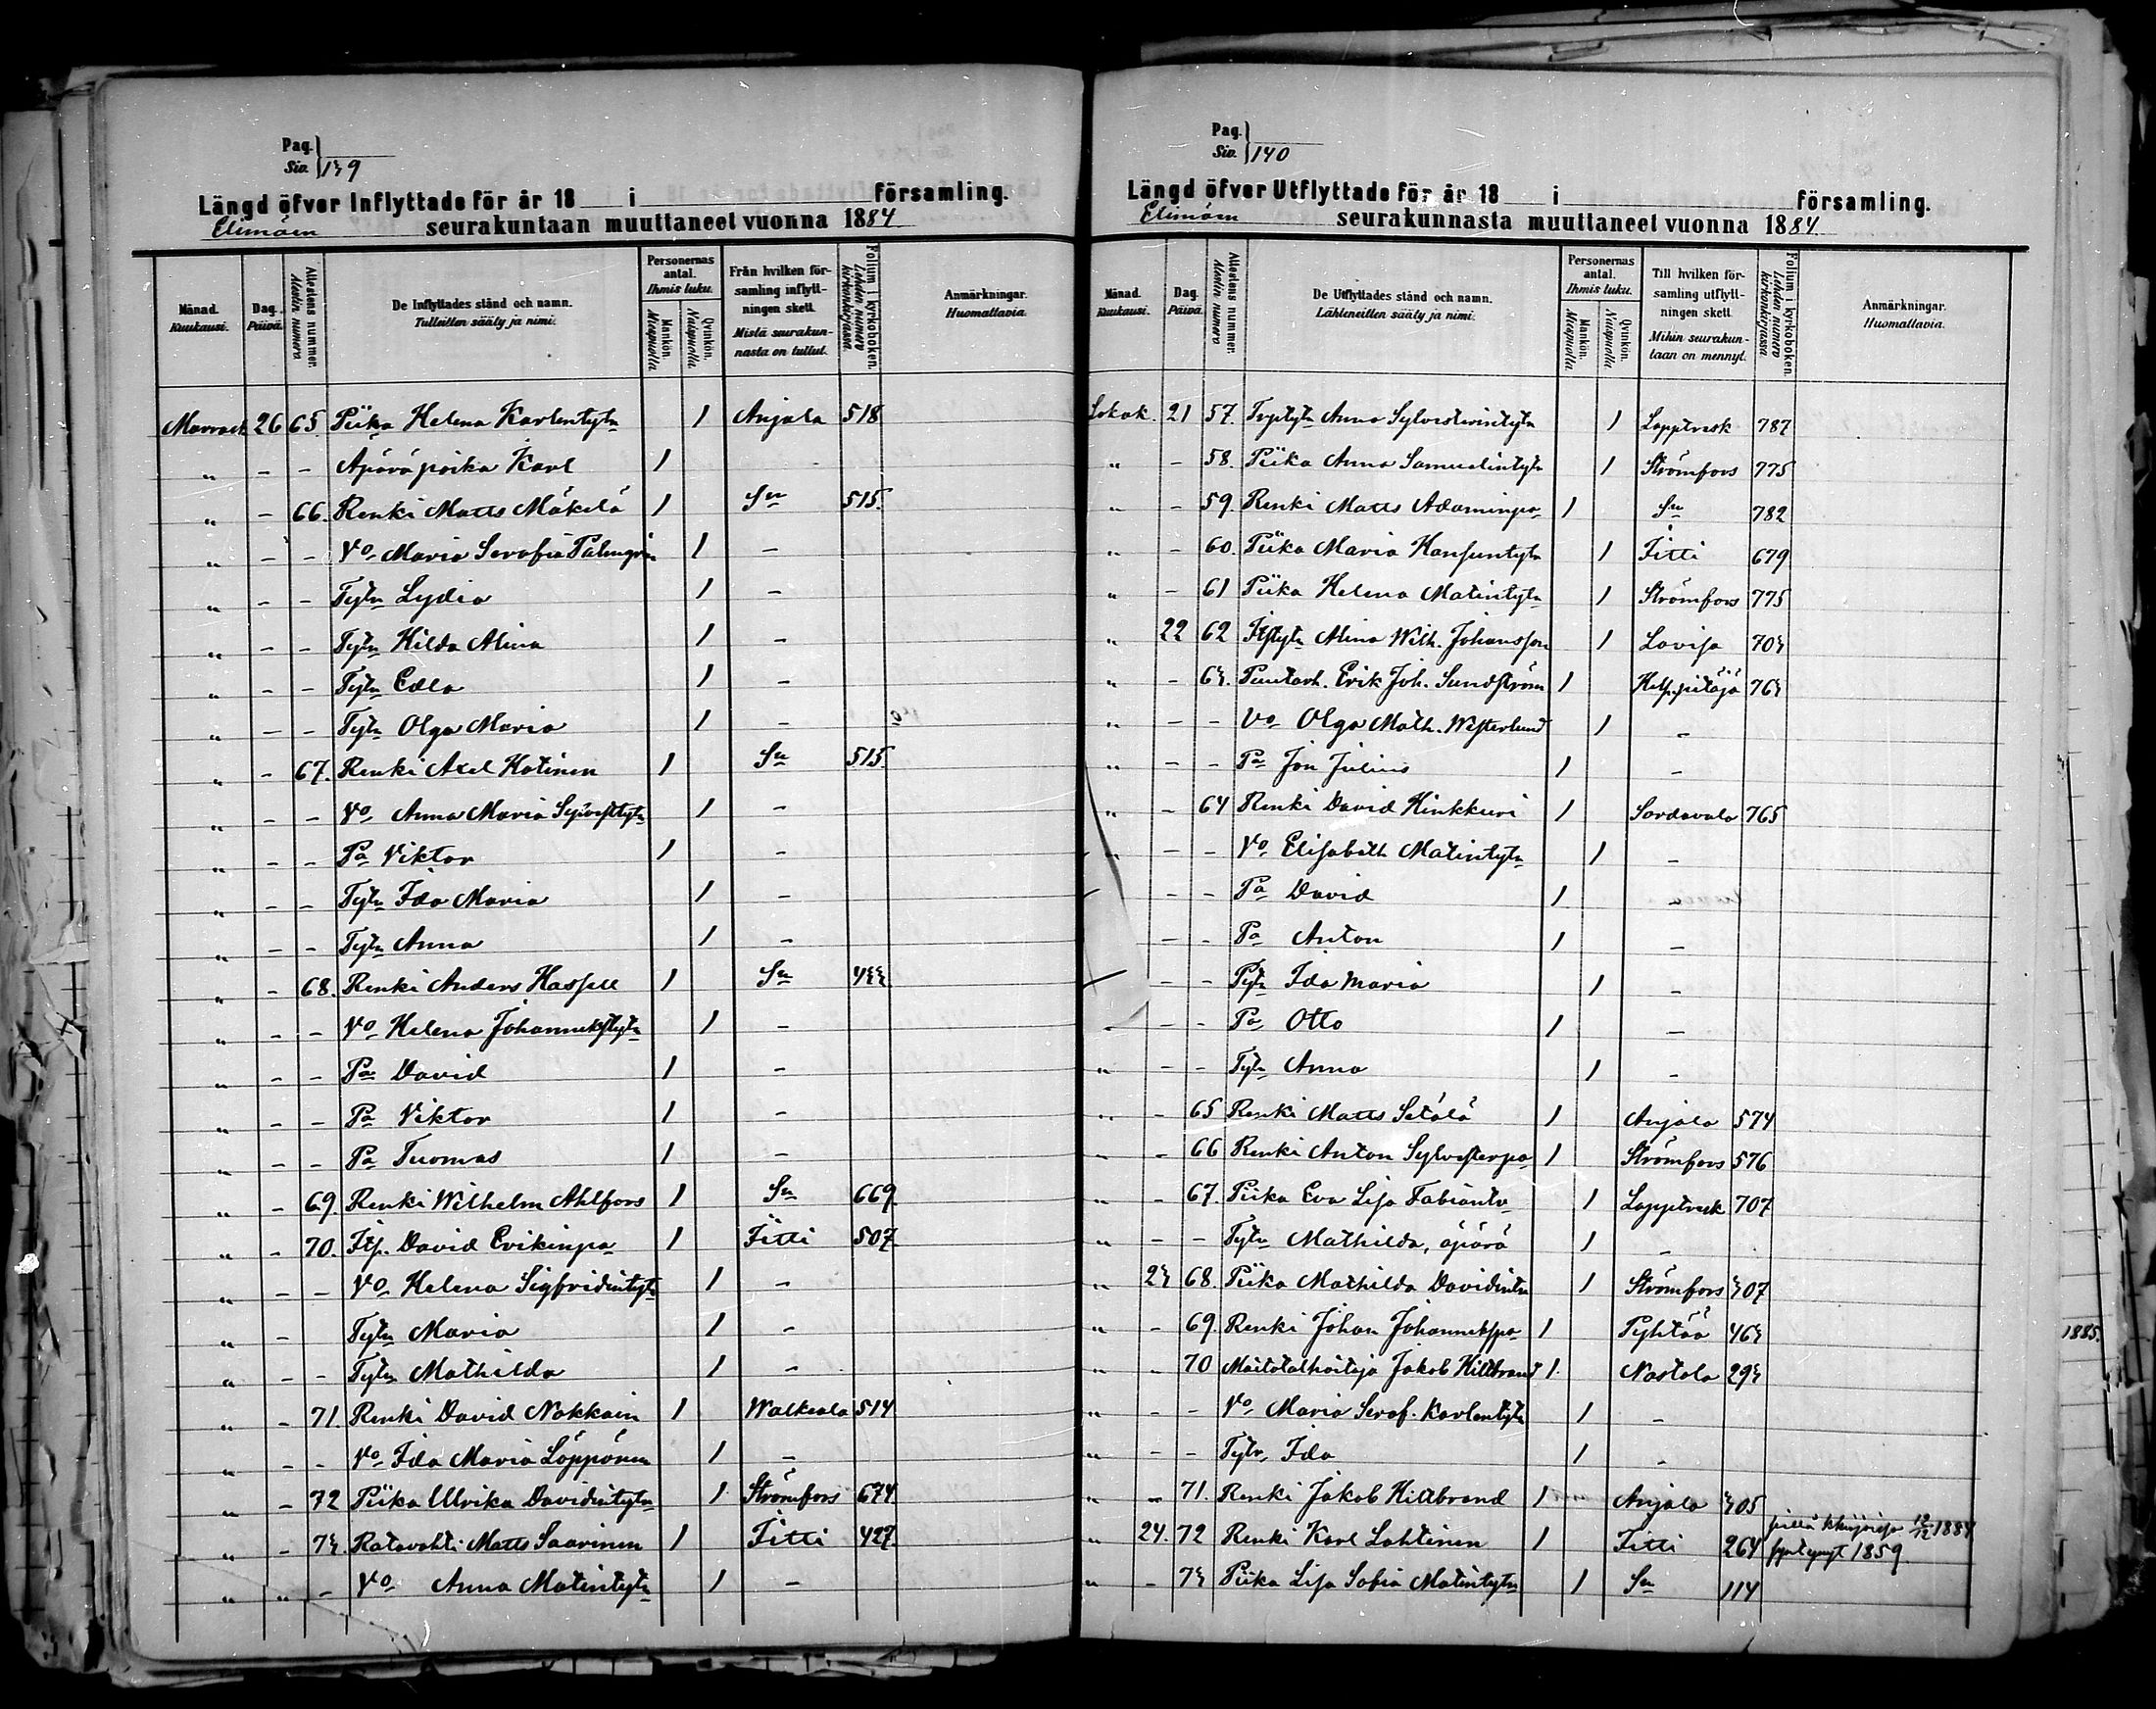 Pag.
Siv. 139
Längd öfver Inflyttade för år 18 i församling.
Elimäen seurakuntaan muuttaneet vuonna 1884
Månad. Kuukausi. Dag. Päivä. Attestens nummer. Atestin numero De Inflyttades stånd och namn. Tulleitten sääty ja nimi. Personernas antal. Ihmis luku. Mankön. Miespuolia Qvinkön. Naispuolia Från hvilken församling inflyttningen skett. Mistä seurakunnasta on tullut. Folium i kyrkoboken. Lehden numero kirkonkirjassa. Anmärkningar. Huomattavia.
Marrask. 26 65. Piika Helena Karlentytr 1 Anjala 518
" - - Äpäräpoika Karl 1
" - 66. Renki Matts Mäkelä 1 Sn 515.
" - - Vo Maria Serafia Palmgrén 1 -
" - - Tytr Lydia 1 -
" - - Tytr Hilda Alina 1 -
" - - Tytr Edla 1 -
" - - Tytr Olga Maria 1 -
" - 67. Renki Axel Hotinen 1 Sn 515.
" - - Vo Anna Maria Sylvesttytr 1 -
" - - Pa Viktor 1 -
" - - Tytr Ida Maria 1 -
" - - Tytr Anna 1 -
" - 68. Renki Anders Hassell 1 Sn 433
" - - Vo Helena Johanneksstytr 1 -
" - - Pa David 1 -
" - - Pa Viktor 1 -
" - - Pa Tuomas 1 -
" - 69. Renki Wilhelm Ahlfors 1 Sn 669.
" - 70. Itp. David Erikinpa 1 Iitti 507
" - - Vo Helena Sigfridintytr 1 -
" - Tytr Maria 1 -
" - - Tytr Mathilda 1 -
" - 71. Renki David Nokkain 1 Walkeala 514
" - - Vo Ida Maria Löppönen 1 -
" - 72 Piika Ulrika Davidintytr 1 Strömfors 674
" - 73. Ratavahti Matts Saarinen 1 Iitti 427.
" " - Vo Anna Matintytr 1 -
Pag.
Siv. 140
Längd öfver Utflyttade för år 18 i församling.
Elimäen seurakunnasta muuttaneet vuonna 1884.
Månad. Kuukausi. Dag. Päivä. Attestens nummer. Atestin numero De Utflyttades stånd och namn. Lähteneitten sääty ja nimi. Personernas antal. Ihmis luku. Mankön. Miespuolia Qvinkön. Naispuolia Till hvilken församling utflyttningen skett. Mihin seurakuntaan on mennyt. Folium i kyrkoboken. Lehden numero kirkonkirjassa Anmärkningar. Huomattavia.
Lokak. 21 57. Anna Sylvesterintytr 1 Lapptresk 787
" - 58. Piika Anna Samuelintytr 1 Strömfors 775
" - 59. Renki Matts Adaminpa 1 Sn 782
" - 60. Piika Maria Hansuntytr 1 Iitti 679
" - 61 Piika Helena Matintytr 1 Strömfors 775
" 22 62 Itstytr Alina Wilh. Johansson 1 Lovisa 703
" - 63. Puutarh. Erik Joh. Sundström 1 Hels.pitäjä 763
" - - Vo Olga Math. Westerlund 1 -
" - - Pa Jon Julius 1 -
" - 64 Renki David Hinkkuri 1 Sordavala 765
" - - Vo Elisabeth Matintytr 1 -
- - Pa David 1 -
- - Pa Anton 1 -
- - Tytr Ida Maria 1 -
- - Pa Otto 1 -
" - - Tytr Anna 1 -
" - 65 Renki Matts Setälä 1 Anjala 574
" - 66 Renki Anton Sylvesterpa 1 Strömfors 576
" - 67. Piika Eva Lisa Fabiantr 1 Lapptresk 707
" - - Tytr Mathilda, äpärä 1 -
" 23 68. Piika Mathilda Davidintr 1 Strömfors 307
" - 69. Renki Johan Johanneksspa 1 Pyhtää 463
" - 70 Maitotalhoitaja Jakob Hildbrand 1. Nastola 293
" - - Vo Maria Seraf. Karlentytr 1 -
" - - Tytr Ida 1 -
" - 71. Renki Jakob Hildbrand 1 Anjala 305
" 24. 72 Renki Karl Lahtinen 1 Iitti 264 1884 syntynyt 1859.
" - 73 Piika Lisa Sofia Matintytr 1 Sn 114
1885.